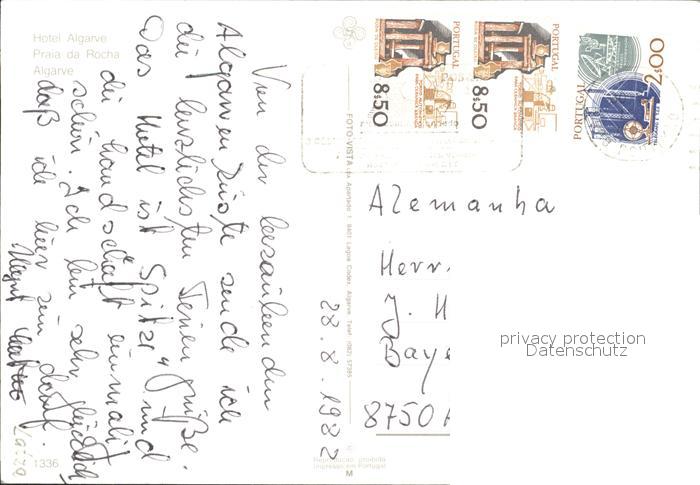 Hotel Algarve
Praia da Rocha
Algarve
Von der bezaubernden
Algarven Küste sende ich
die herzlichsten Feriengrüße.
Das Hotel ist "Spitze" und
die Landschaft einmalig
schön. Ich bin sehr glücklich
daß ich hier sein darf.
28.8.1982
1336
FOTO-VISTA
Reprodução proibida
Impresso em Portugal
M
PORTUGAL
8$50
PORTUGAL
8$50
PORTUGAL
2$00
Alemanha
Herr.
J. H
Baye
8750
privacy protection
Datenschutz